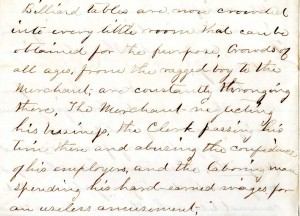 Billiard tables are now crowded
into every little room that can be
obtained for the purpose. Crowds of
all ages, from the ragged boy to the
Merchant; are constantly thronging
there, The Merchant neglecting
his business, the Clerk passing his
time there and abusing the confidence
of his employers, and the laboring man
spending his hard earned wages for
an useless amusement;